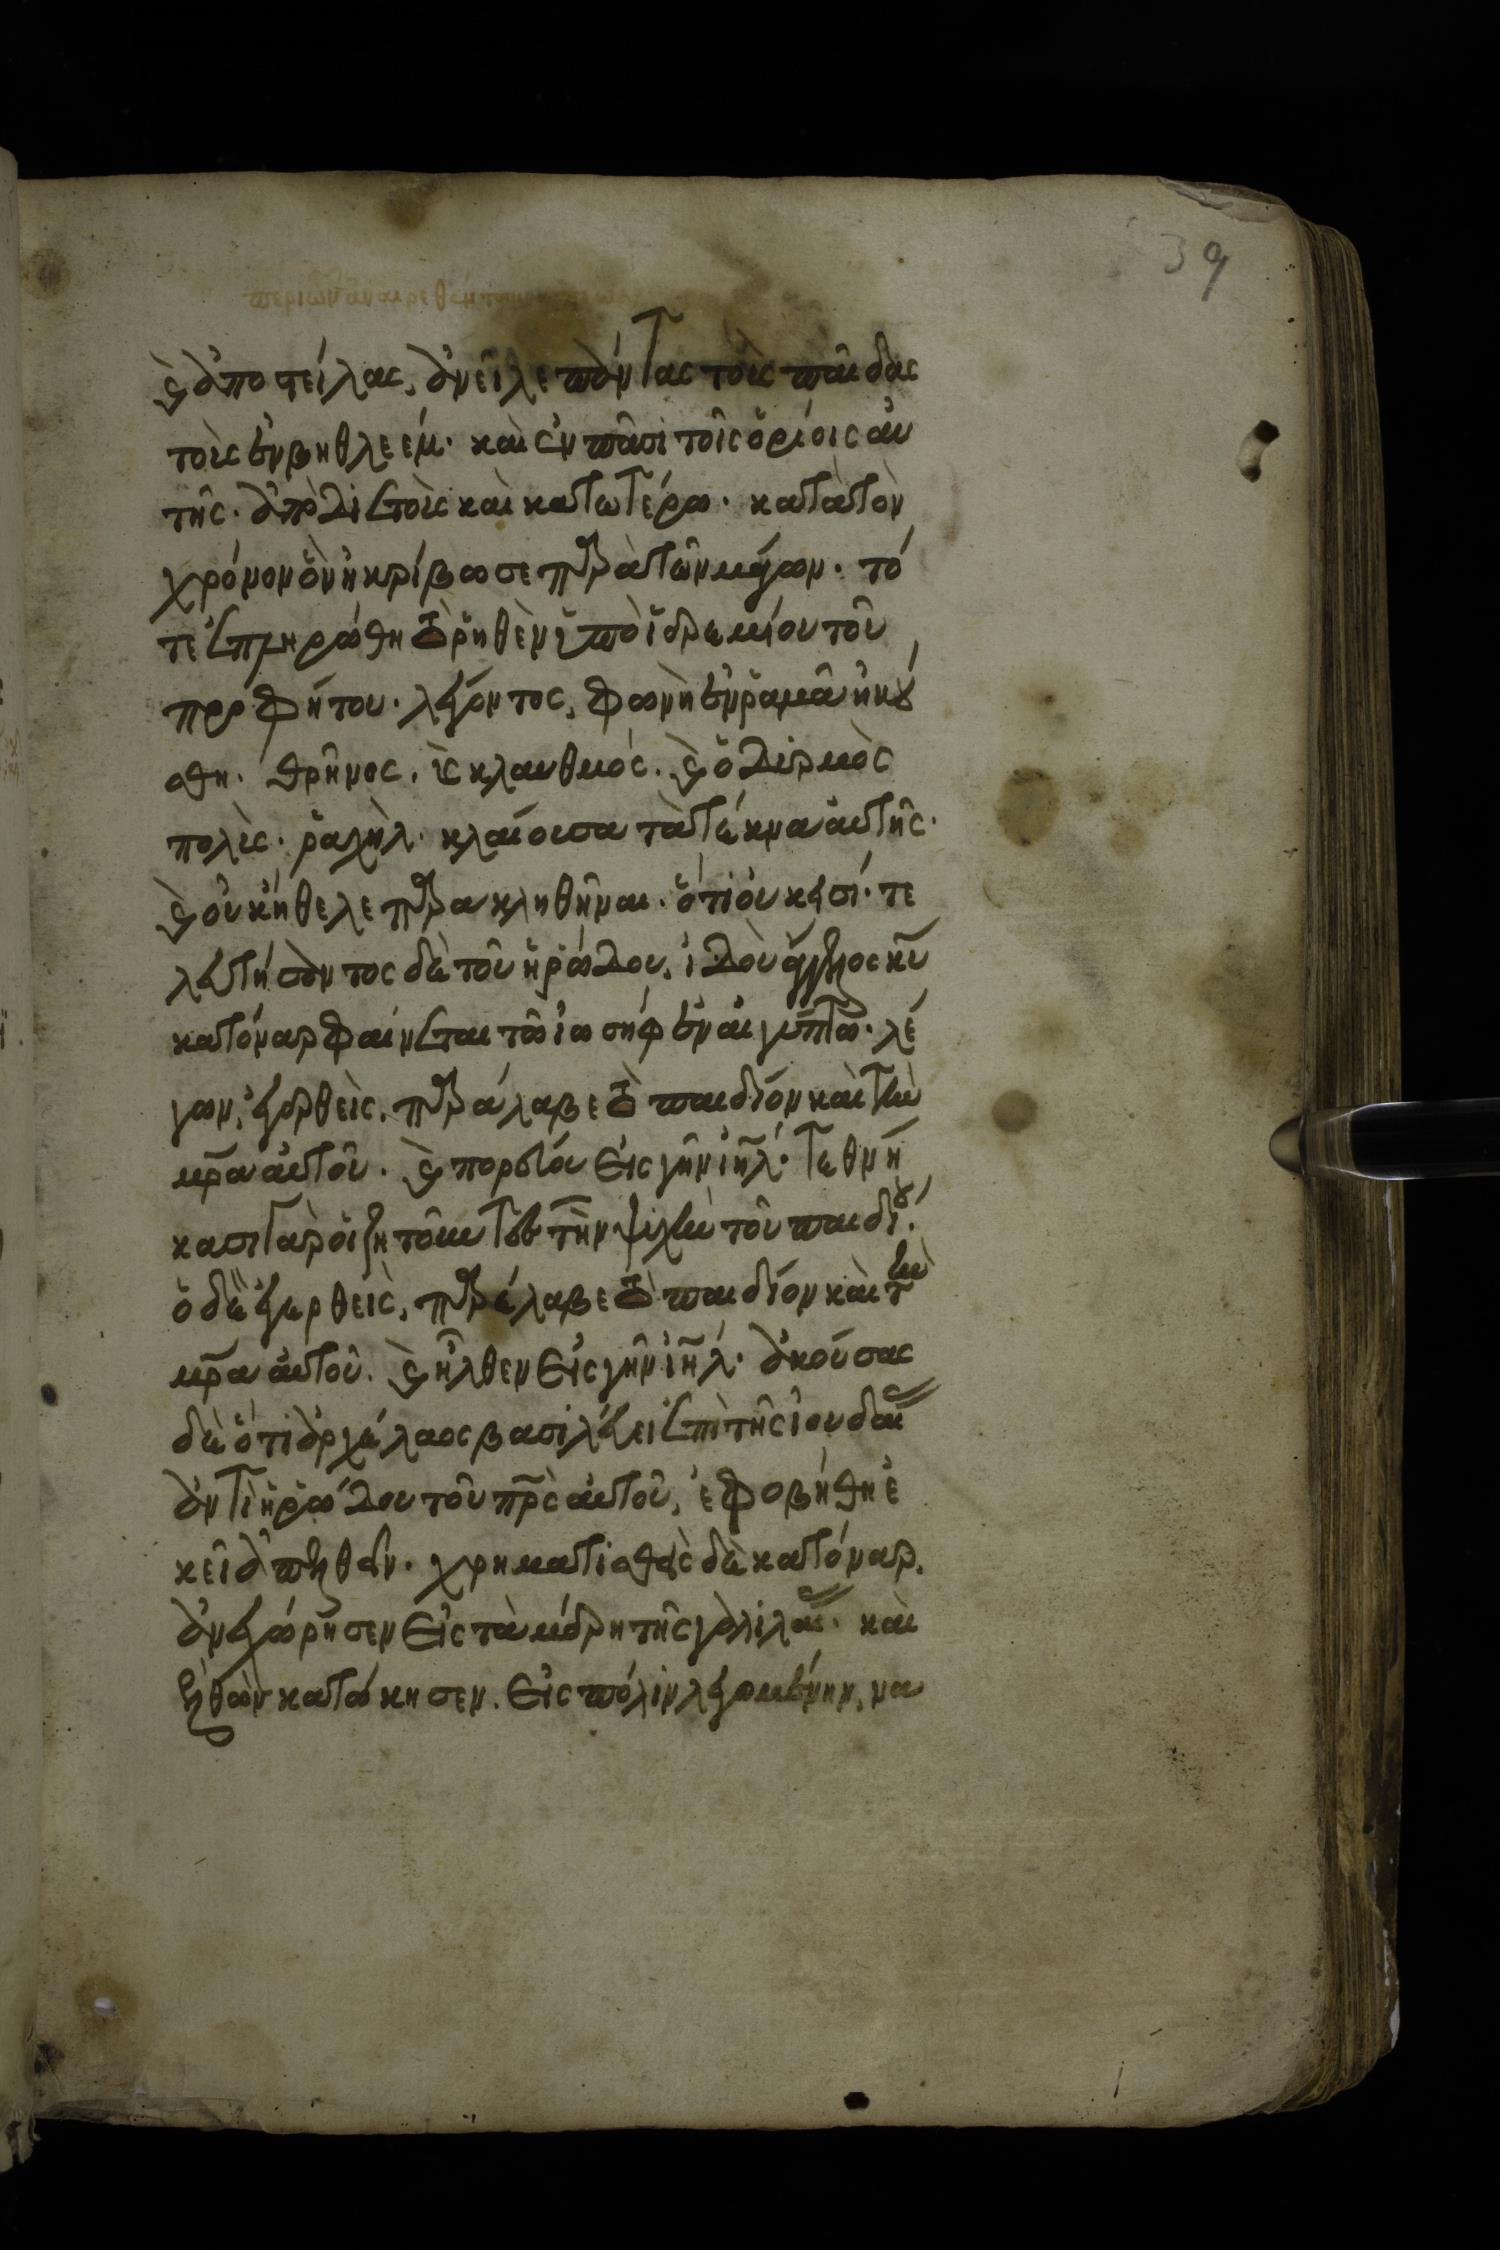 39
περι των αναιρεθεντων
κ ἀποστείλας, ἀνεῖλε πάντας τοὺς παῖδας
τοὺς ἐν βηθλεέμ· καὶ ἐν πᾶσι τοῖς ὁρίοις αὐ
τῆς· ἀπὸ διετοῦς καὶ κατωτέρω· κατὰ τὸν
χρόνον ὃν ἠκρίβωσε παρὰ τῶν μάγων· τό
τε ἐπληρώθη τὸ ῥηθὲν ὑπὸ ἱερεμίου τοῦ
προφήτου· λέγοντος, φωνὴ ἐν ῥαμᾶ ἠκού
σθη· θρῆνος, κ κλαυθμός. κ ὀδυρμὸς
πολὺς· ῥαχὴλ· κλαίουσα τὰ τέκνα αὐτῆς·
κ οὐκ ἤθελε παρακληθῆναι· ὅτι οὐκ εἰσί· τε
λευτήσαντος δὲ τοῦ ἡρώδου, ἰδοὺ ἄγγελος κυ
κατόναρ φαίνεται τῶ ἰωσὴφ ἐν αἰγύπτω· λέ
γων, ἐγερθεὶς, παράλαβε τὸ παιδίον καὶ τὴν
μρα αὐτοῦ. κ πορεύου εἰς γῆν ιηλ· τεθνή
κασι γὰρ οἱ ζητοῦντες τὴν ψυχὴν τοῦ παιδίου·
ὁ δὲ ἐγερθεὶς, παρέλαβε τὸ παιδίον καὶ τὴν
μρα αὐτοῦ. κ ἦλθεν εἰς γῆν ιηλ· ἀκούσας
δὲ ὅτι ἀρχέλαος βασιλεύει ἐπὶ τῆς ἰουδαίας
ἀντὶ ἡρώδου τοῦ πρς αὐτοῦ, ἐφοβήθη ἐ
κεῖ ἀπελθεῖν· χρηματισθεὶς δὲ κατόναρ,
ἀνεχώρησεν εἰς τὰ μέρη τῆς γαλιλαίας· καὶ
ἐλθὼν κατώκησεν. εἰς πόλιν λεγομένην, να